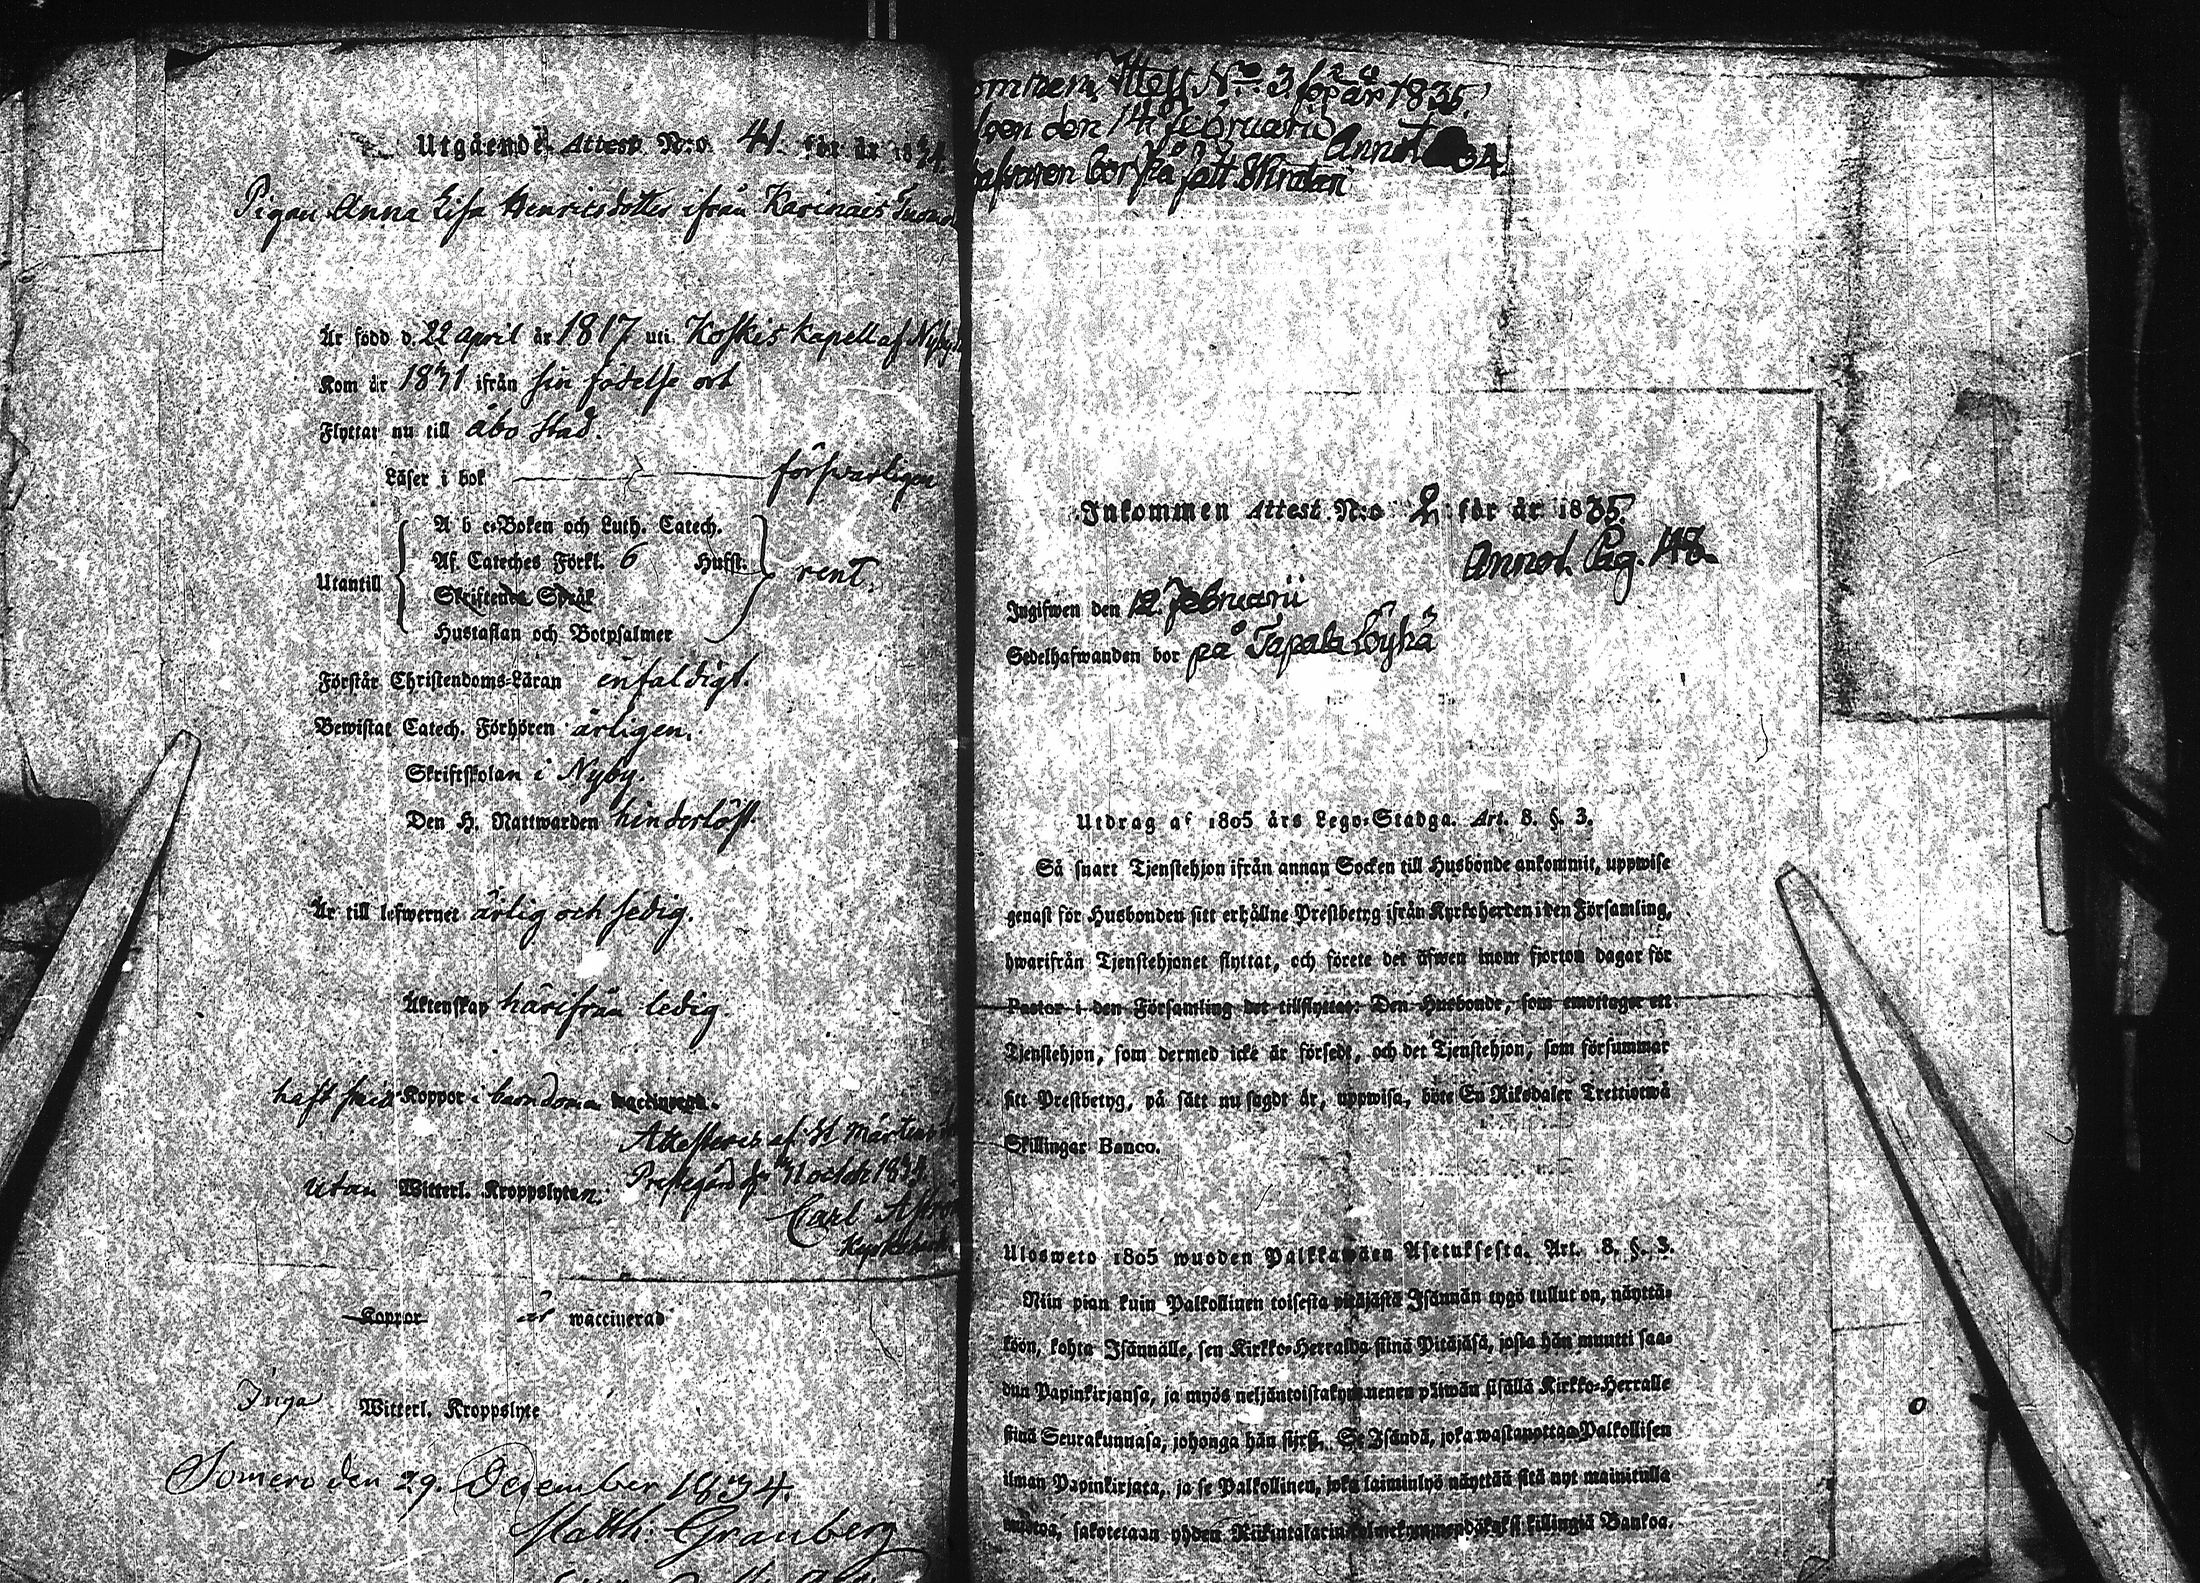 Utgående Attest N:o 41. för år 1834.
Pigan Anna Lisa Henricsdotter ifrån Karinais
Är född d. 22 april år 1817 uti Koskis kapell af
Kom år 1831 ifrån sin födelse ort
Flyttar nu till Åbo stad.
Läser i bok försvarligen
A b c-Boken och Luth. Catech.
Af Cateches Förkl. 6 Hufst.
Utantill rent.
Skriftenes Språk
Hustaflan och Botpsalmer
Förstår Christendoms-Läran enfaldigt.
Bewistat Catech. Förhören årligen.
Skriftskolan i Nyby.
Den H. Nattwarden hinderlöst.
Är till lefwernet ärlig och sedig.
Äktenskap härifrån ledig.
haft Koppor i barndomen waccinerad.
Attesteras af St Mårtens
utan Witterl. Kroppslyten. Prestegård d. 31 octob. 1834.
Carl
Koppor är waccinerad
Inga Witterl. Kroppslyte
Somero den 29. December 1834.
Matth. Granberg
Attest N:o 3 för år 1835.
den 14 Februarii Annot 34.
bor på
Inkommen Attest N:o 2 för år 1835.
Annot. Pag. 148.
Ingifwen den 12. Februarii
Sedelhafwanden bor på Tapala Löyhä
Utdrag af 1805 års Lego-Stadga. Art. 8. §. 3.
Så snart Tjenstehjon ifrån annan Socken till Husbonde ankommit, uppwise
genast för Husbonden sitt erhållne Prestbetyg ifrån Kyrkoherden i den Församling,
hwarifrån Tjenstehjonet flyttat, och förete det äfwen inom fjorton dagar för
Pastor i den Församling det tillflyttat. Den Husbonde, som emottager ett
Tjenstehjon, som dermed icke är försedt, och det Tjenstehjon, som försummar
sitt Prestbetyg, på sätt nu sagdt är, uppwisa, böte En Riksdaler Trettiotwå
Skillingar Banco.
Ulosweto 1805 wuoden Palkkawäen Asetuksesta. Art. 8. §. 3.
Niin pian kuin Palkollinen toisesta pitäjästä Isännän tygö tullut on, näyttä-
köön, kohta Isännälle, sen Kirkko-Herralda siinä Pitäjäsä, josta hän muutti saa-
dun Papinkirjansa, ja myös neljäntoistakymmenen päiwän sisällä Kirkko-Herralle
siinä Seurakunnasa, johonga hän siirsi. Se Isändä, joka wastanottaa Palkollisen
ilman Papinkirjata, ja se Palkollinen, joka laiminlyö näyttää sitä nyt mainitulla
muotoa, sakotetaan yhden Riikintalarin kolmekymmendäkaksi killingiä Bankoa.